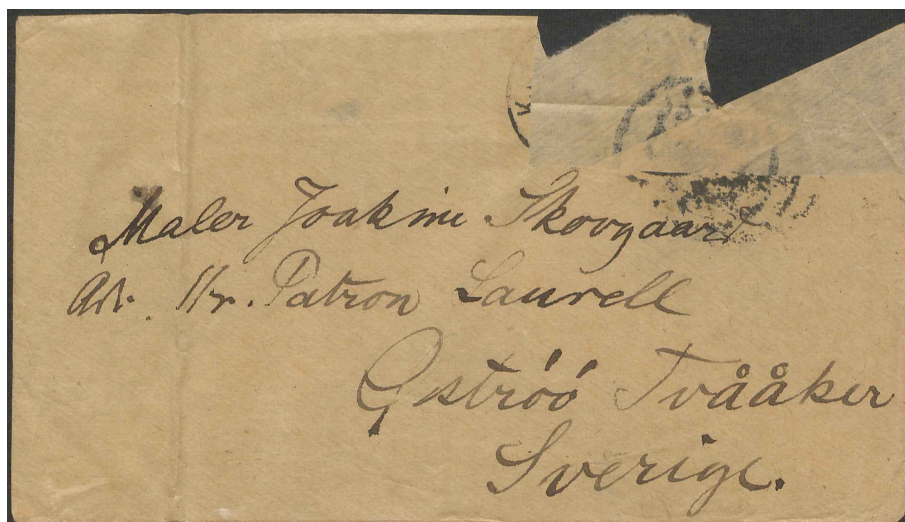 Maler Joakim Skovgaard
Adr. Hr. Patron Laurell
Oströö Tvååker
Sverige.